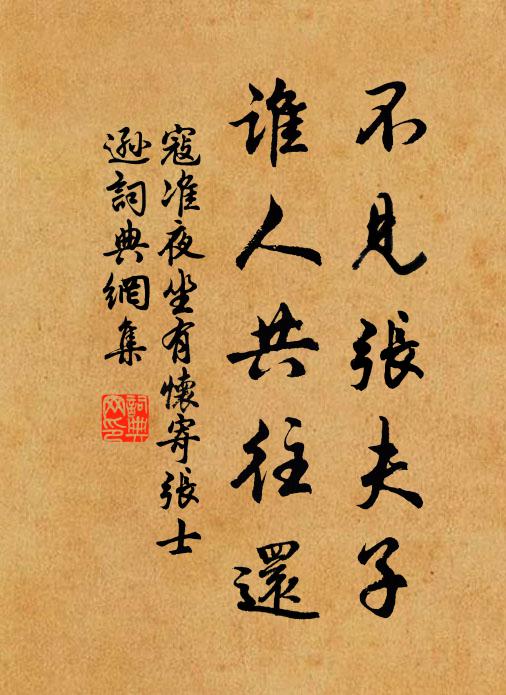 不見張夫子
誰人共往還
寇准夜坐有懷寄張士
遜詞典網集
詞典
網印